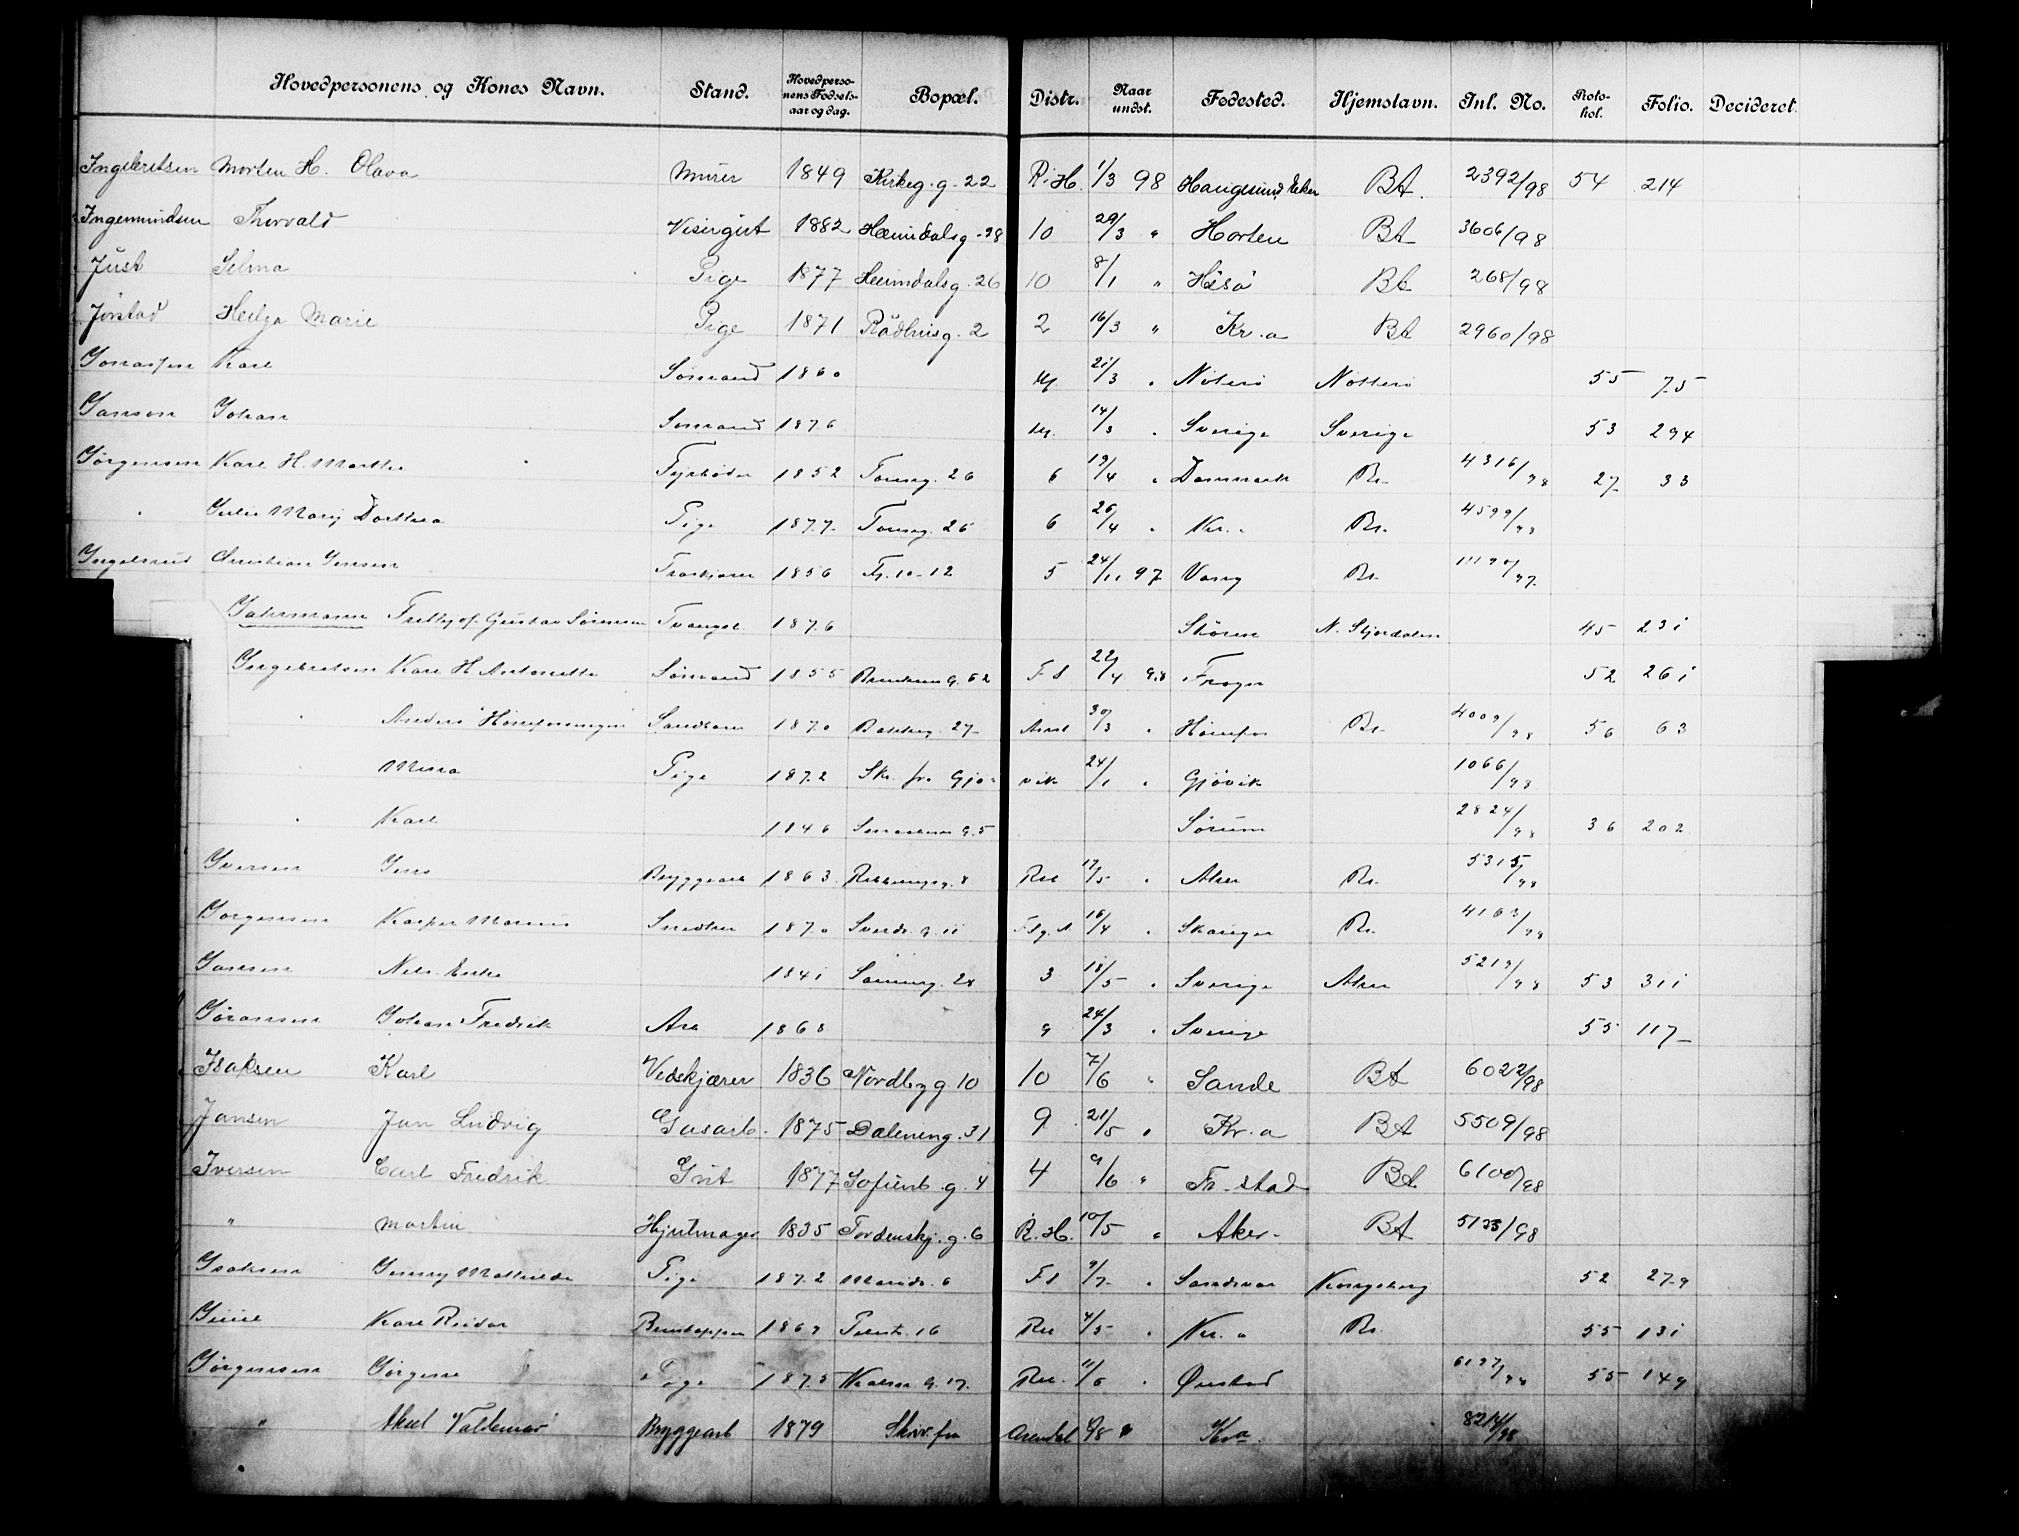 Hovedpersonens og Kones Navn. Stand. Hovedpersonens Fødselsaar og dag. Bopæl. Distr. Naar undst. Fødested. Hjemstavn. Inl. No. Protokol. Folio. Decideret.
Ingebretsen Morten H. Olava Murer 1849 Kirkeg. g. 22 R. H. 1/3 98 Haugsund, Eker Bt. 2392/98 54 214
Ingemundsen Thorvald Visergut 1882 Heimdalsg. 28 10 29/3 " Horten Bt 3606/98
Just Selma Pige 1877 Heimdalsg. 26 10 8/1 " Hisø Bt 268/98
Jørstad Helga Marie Pige 1871 Rådhusg. 2 2 16/3 " Kr.a Bt 2960/98
Jonassen Karl Sømand 1860 21/3 " Nøterø Nøtterø 55 75
Janson Johan Sømand 1876 14/3 " Sverige Sverige 53 294
Jørgensen Karl H. Marthe 1852 Toung. 26 6 19/4 " Danmark Bt. 4316/98 27 33
" Julie Marij Dorthea Pige 1877 Toung. 26 6 26/4 " Kr.a Bt. 4599/98
Ingelsrud Christian Jensen 1856 Fj. 10-12 5 24/11 97 Vang Bt. 11190/97
Jahrmann Frithjof Gustav Sørensen Tvangsl. 1876 Støren N. Stjørdalen 45 231
Ingebretsen Karl H. Antonette Sømand 1855 g. 52 F S 22/4 98 Frogn 52 261
" Anders Hønefoss 1870 Bakkeg. 27 30/3 " Hønefos Bt. 4009/98 56 63
" Mina Pige 1872 Skr. fra Gjøvik 24/1 " Gjøvik 1066/98
" Karl 1846 g. 5 Sørum 2824/98 36 202
Iversen Jens Bryggearb 1863 8 Ru 17/5 " Aker Bt. 5315/98
Jørgensen Kasper Marius Snedker 1870 Sverdr. g. 11 16/4 " Bt. 4163/98
Jansen Nels Erik 1841 28 3 18/5 " Sverige Aker 5219/98 53 311
Jøransen Johan Fredrik Arb 1868 9 24/3 " Sverige 55 117
Isaksen Karl Vedskjærer 1836 Nordbyg 10 10 7/6 " Sande Bt 6022/98
Jansen Jan Ludvig Gasarb. 1875 Dæleneng. 31 9 21/5 " Kr.a Bt 5509/98
Iversen Carl Fredrik Gut 1877 Sofienb. g. 4 4 9/6 " Fr.stad Bt 6100/98
" Martin Hjulmager 1835 Tordenskj. g. 6 R. H. 10/5 " Aker Bt 5123/98
Isaksen Jenny Mathilde Pige 1872 Marids. 6 F S 9/7 " Sandsvær Kongsberg 52 279
Karl Reidar 1869 Pilestr. 16 Ru 4/5 " Kr.a Bt. 55 131
Jørgensen Jørgine Pige 1875 g. 17 Ru. 11/6 " 6197/98 55 149
" Aksel Valdemar Bryggearb 1879 Skriv. fra Arendal 6/8 " Kra. 8214/98